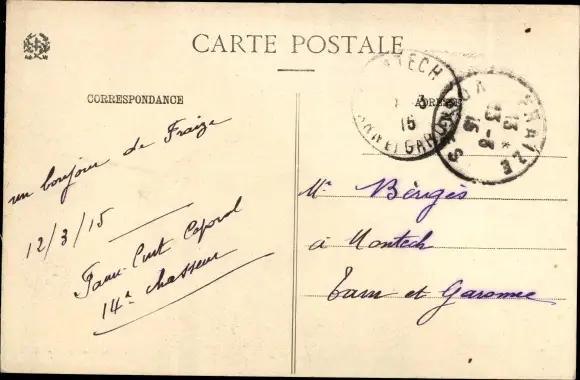 CARTE POSTALE
CORRESPONDANCE
ADRESSE
un bonjour de Fraize
12/3/15
Caporal
14e chasseur
Mr Bergès
à Montech
Tarn et Garonne
MONTECH
3
15
TARN ET GARONNE
FRAIZE
13 - 3
15
VOSGES